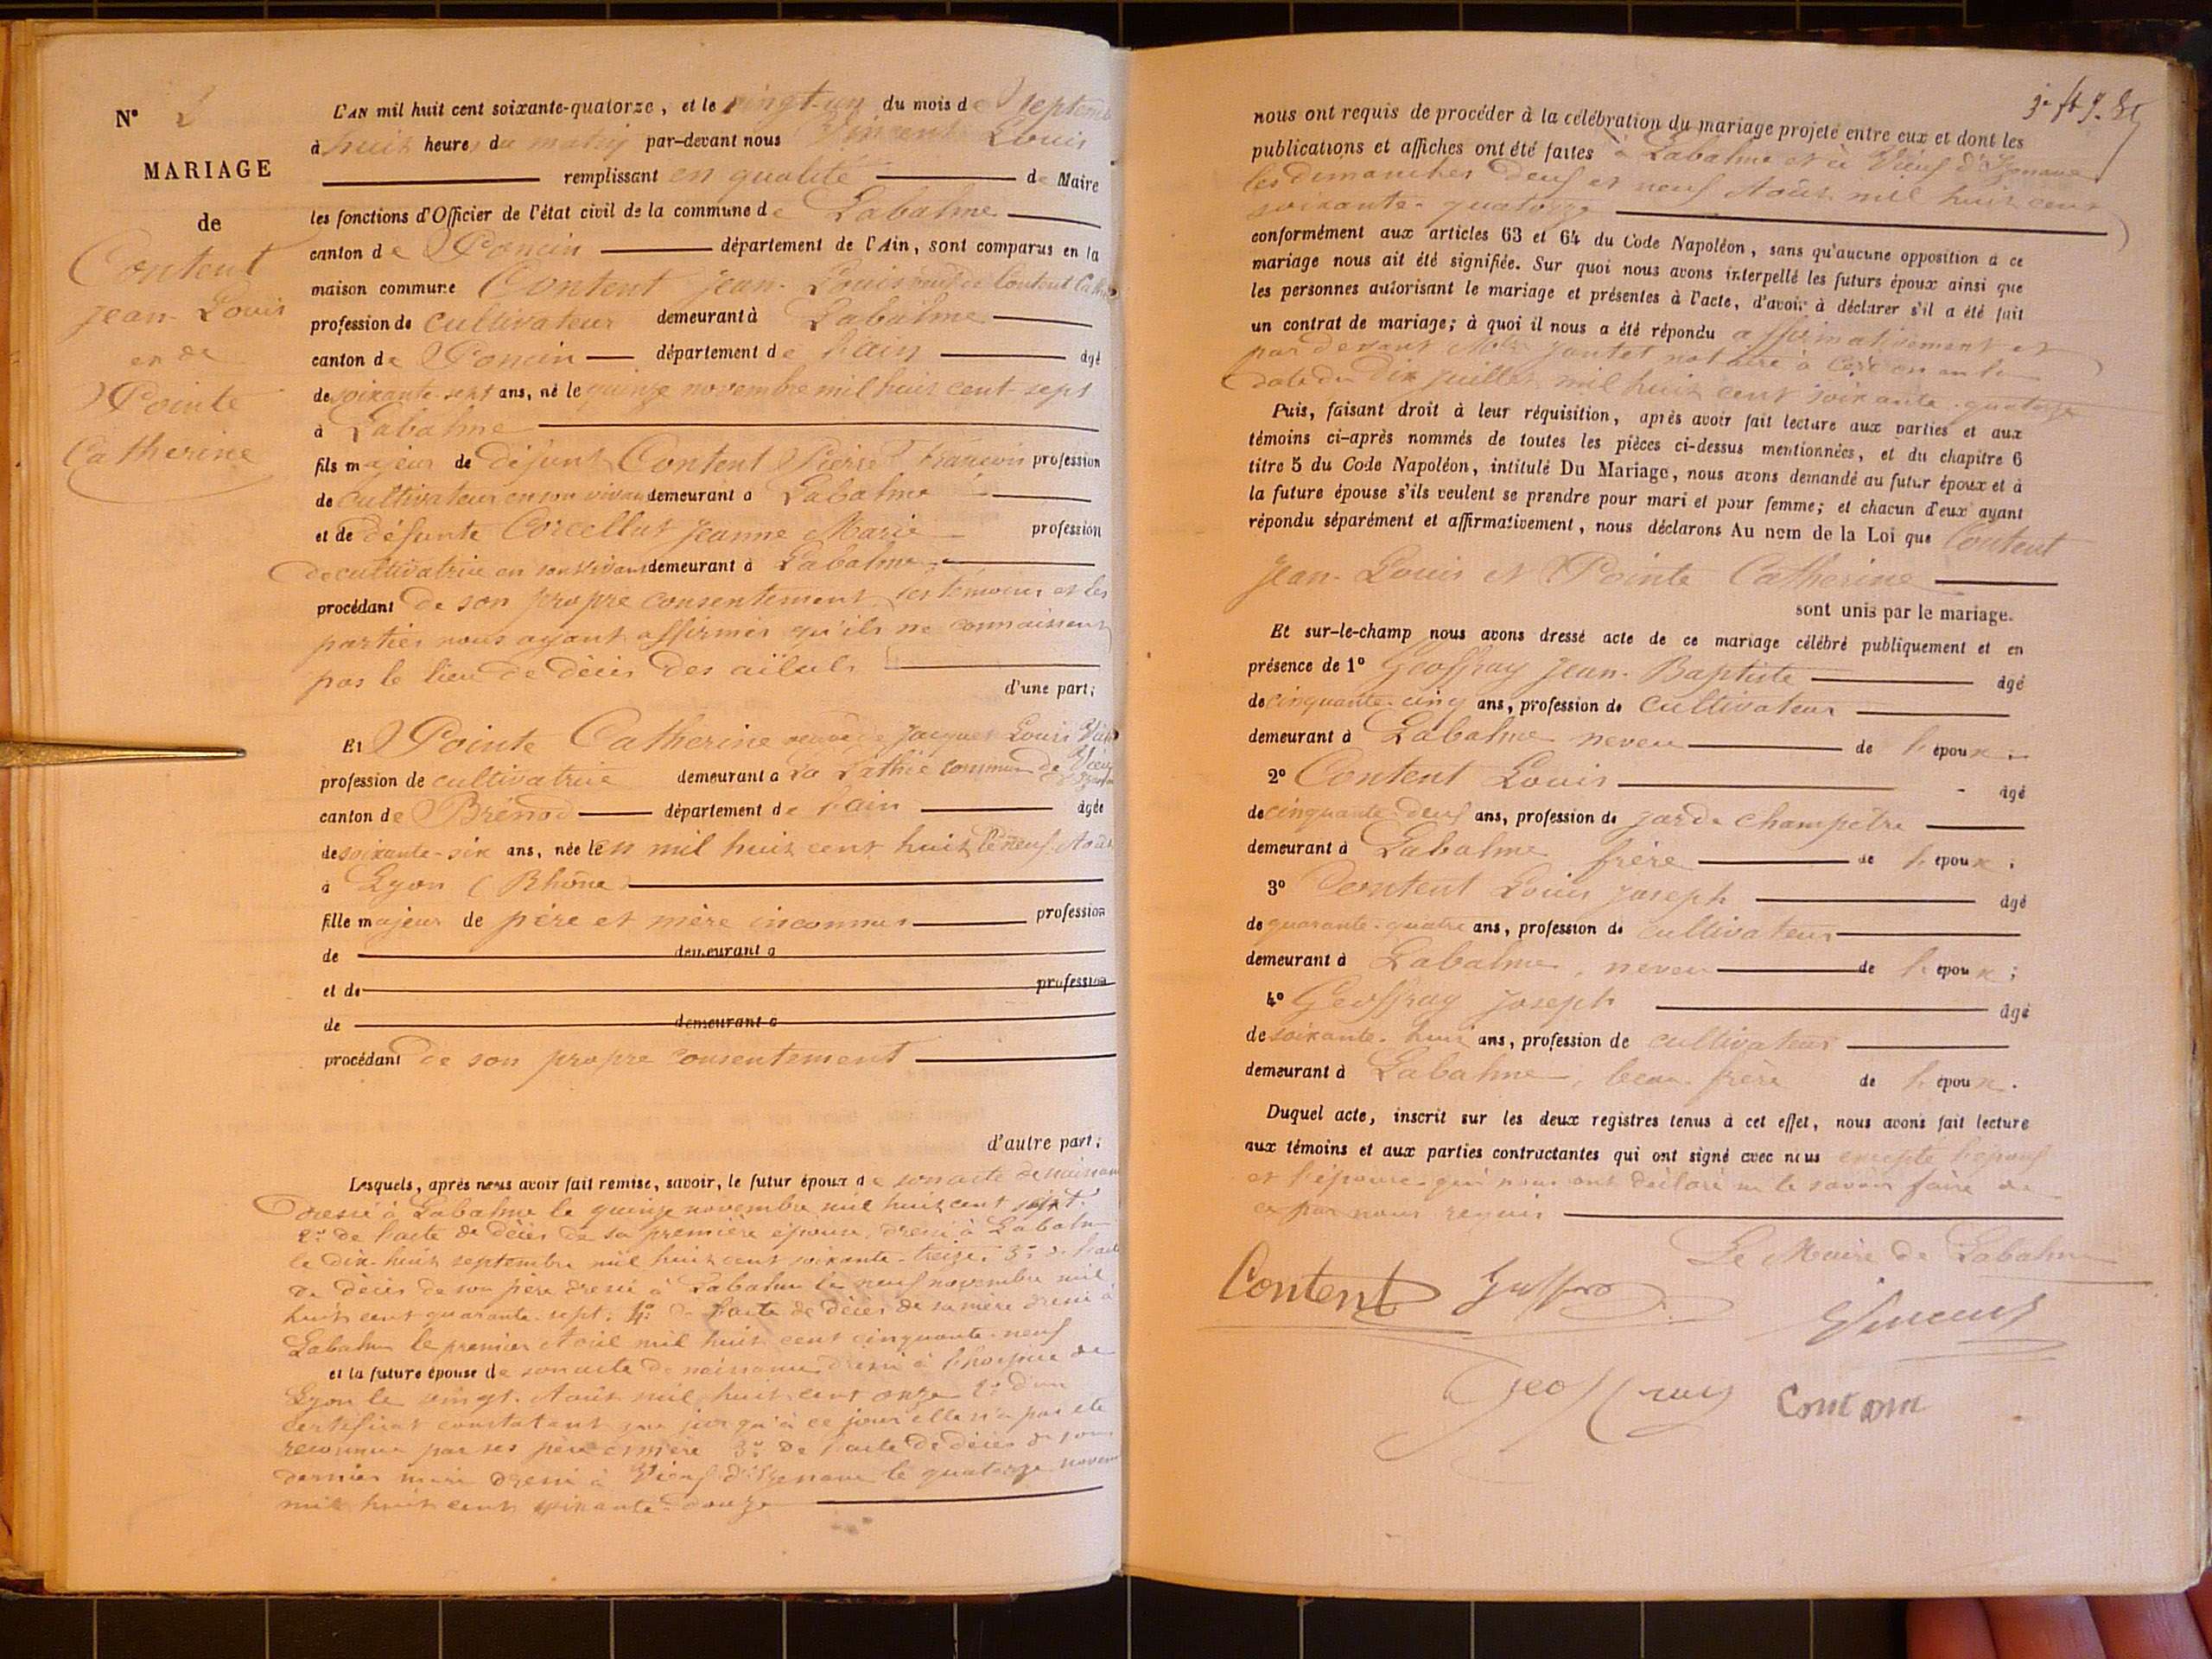 N° 2
MARIAGE
de
Content
Jean Louis
et de
Pointe
Catherine
L'AN mil huit cent soixante-quatorze, et le vingt-un du mois de Septemb
à huit heures du matin par-devant nous Vincent Louis
remplissant en qualité de Maire
les fonctions d'Officier de l'état civil de la commune de Labalme
canton de Poncin département de l'Ain, sont comparus en la
maison commune Content Jean-Louis veuf de Content
profession de cultivateur demeurant à Labalme
canton de Poncin département de l'ain âgé
de soixante-sept ans, né le quinze novembre mil huit cent sept
à Labalme
fils majeur de défunt Content Pierre François profession
de cultivateur en son vivant demeurant à Labalme
et de défunte Corcellut Jeanne Marie profession
de cultivatrice en son vivant demeurant à Labalme
procédant de son propre consentement, les témoins et les
parties nous ayant affirmés qu'ils ne connaissent
pas le lieu de décès des aïeuls
d'une part;
Et Pointe Catherine veuve de Jacques Louis
profession de cultivatrice demeurant à La commune de Vieux
canton de Brénod département de l'ain âgée
de soixante-six ans, née le en mil huit cent huit le neuf Août
à Lyon (Rhône)
fille majeur de père et mère inconnus profession
de demeurant à
et de profession
de demeurant à
procédant de son propre consentement
d'autre part;
Lesquels, après nous avoir fait remise, savoir, le futur époux de son acte de naissan
dressé à Labalme le quinze novembre mil huit cent sept.
2° de l'acte de décès de sa première épouse, dressé à Labalm
le dix-huit septembre mil huit cent soixante-treize. 3° de l'acte
de décès de son père dressé à Labalme le neuf novembre mil
huit cent quarante-sept. 4° de l'acte de décès de sa mère dressé à
Labalme le premier mil huit cent cinquante-neuf
et la future épouse de son acte de naissance dressé à l'hospice de
Lyon le vingt Août mil huit cent onze 2° d'un
certificat constatant que jusqu'à ce jour elle n'a pas été
reconnue par ses père et mère 3° de l'acte de décès de son
dernier mari dressé à Vieux d'Izenave le quatorze novem
mil huit cent soixante-douze
nous ont requis de procéder à la célébration du mariage projeté entre eux et dont les
publications et affiches ont été faites à Labalme et à Vieux d'Izenave
les dimanches deux et neuf Août mil huit cent
soixante-quatorze
conformément aux articles 63 et 64 du Code Napoléon, sans qu'aucune opposition à ce
mariage nous ait été signifiée. Sur quoi nous avons interpellé les futurs époux ainsi que
les personnes autorisant le mariage et présentes à l'acte, d'avoir à déclarer s'il a été fait
un contrat de mariage; à quoi il nous a été répondu affirmativement et
par devant Jantet notaire à Cerdon en
date du dix juillet mil huit cent soixante-quatorze
Puis, faisant droit à leur réquisition, après avoir fait lecture aux parties et aux
témoins ci-après nommés de toutes les pièces ci-dessus mentionnées, et du chapitre 6
titre 5 du Code Napoléon, intitulé Du Mariage, nous avons demandé au futur époux et à
la future épouse s'ils veulent se prendre pour mari et pour femme; et chacun d'eux ayant
répondu séparément et affirmativement, nous déclarons Au nom de la Loi que Content
Jean-Louis et Pointe Catherine
sont unis par le mariage.
Et sur-le-champ nous avons dressé acte de ce mariage célébré publiquement et en
présence de 1° Geoffray Jean-Baptiste âgé
de cinquante-cinq ans, profession de cultivateur
demeurant à Labalme neveu de l'époux
2° Content Louis âgé
de cinquante-deux ans, profession de garde champêtre
demeurant à Labalme frère de l'époux;
3° Content Louis Joseph âgé
de quarante-quatre ans, profession de cultivateur
demeurant à Labalme, neveu de l'époux;
4° Geoffray Joseph âgé
de soixante-huit ans, profession de cultivateur
demeurant à Labalme, beau-frère de l'époux.
Duquel acte, inscrit sur les deux registres tenus à cet effet, nous avons fait lecture
aux témoins et aux parties contractantes qui ont signé avec nous excepté l'époux
et l'épouse qui nous ont déclaré ne le savoir faire de
ce par nous requis
Le Maire de Labalme
Content Geoffray Vincent
Geoffray Content